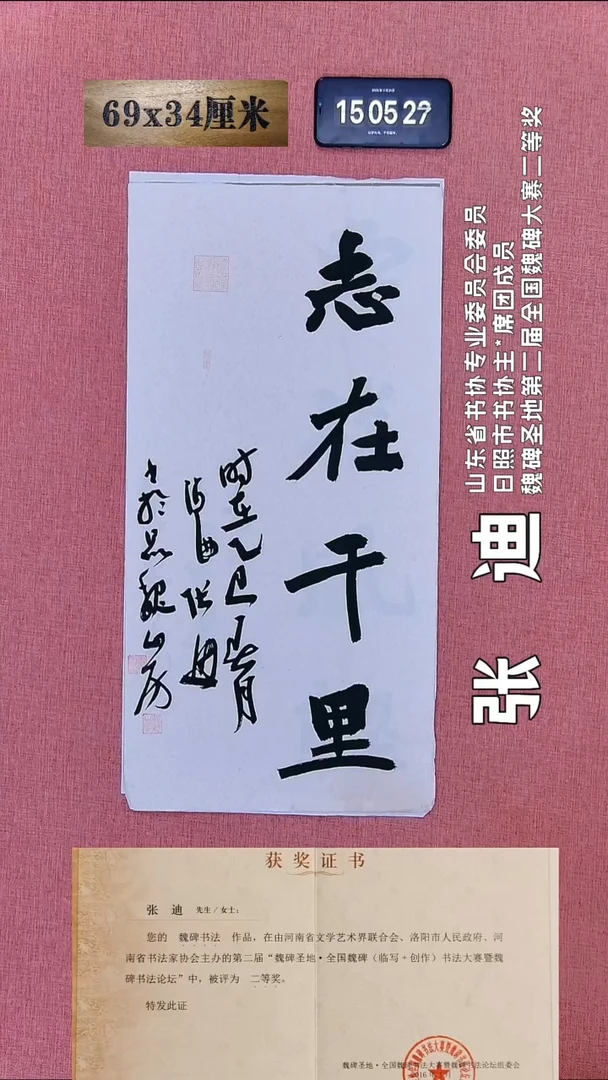 69x34厘米
15 05 27
志在千里
时在乙巳春月
张迪
于品魏山房
山东省书协专业委员会委员
日照市书协主*席团成员
魏碑圣地第二届全国魏碑大赛二等奖
张 迪
获奖证书
张 迪 先生/女士:
您的 魏碑书法 作品,在由河南省文学艺术界联合会、洛阳市人民政府、河
南省书法家协会主办的第二届“魏碑圣地·全国魏碑(临写+创作)书法大赛暨魏
碑书法论坛”中,被评为 二等奖。
特发此证
魏碑圣地·全国魏碑书法大赛暨魏碑书法论坛组委会